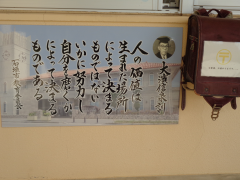 人の価値は
生まれた場所
によって決まる
ものではない
いかに努力し
自分を磨くか
によって決まる
ものである